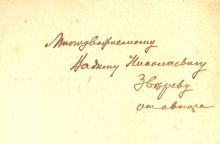 Многоуважаемому
Вадиму Николаевичу
Звереву
от автора